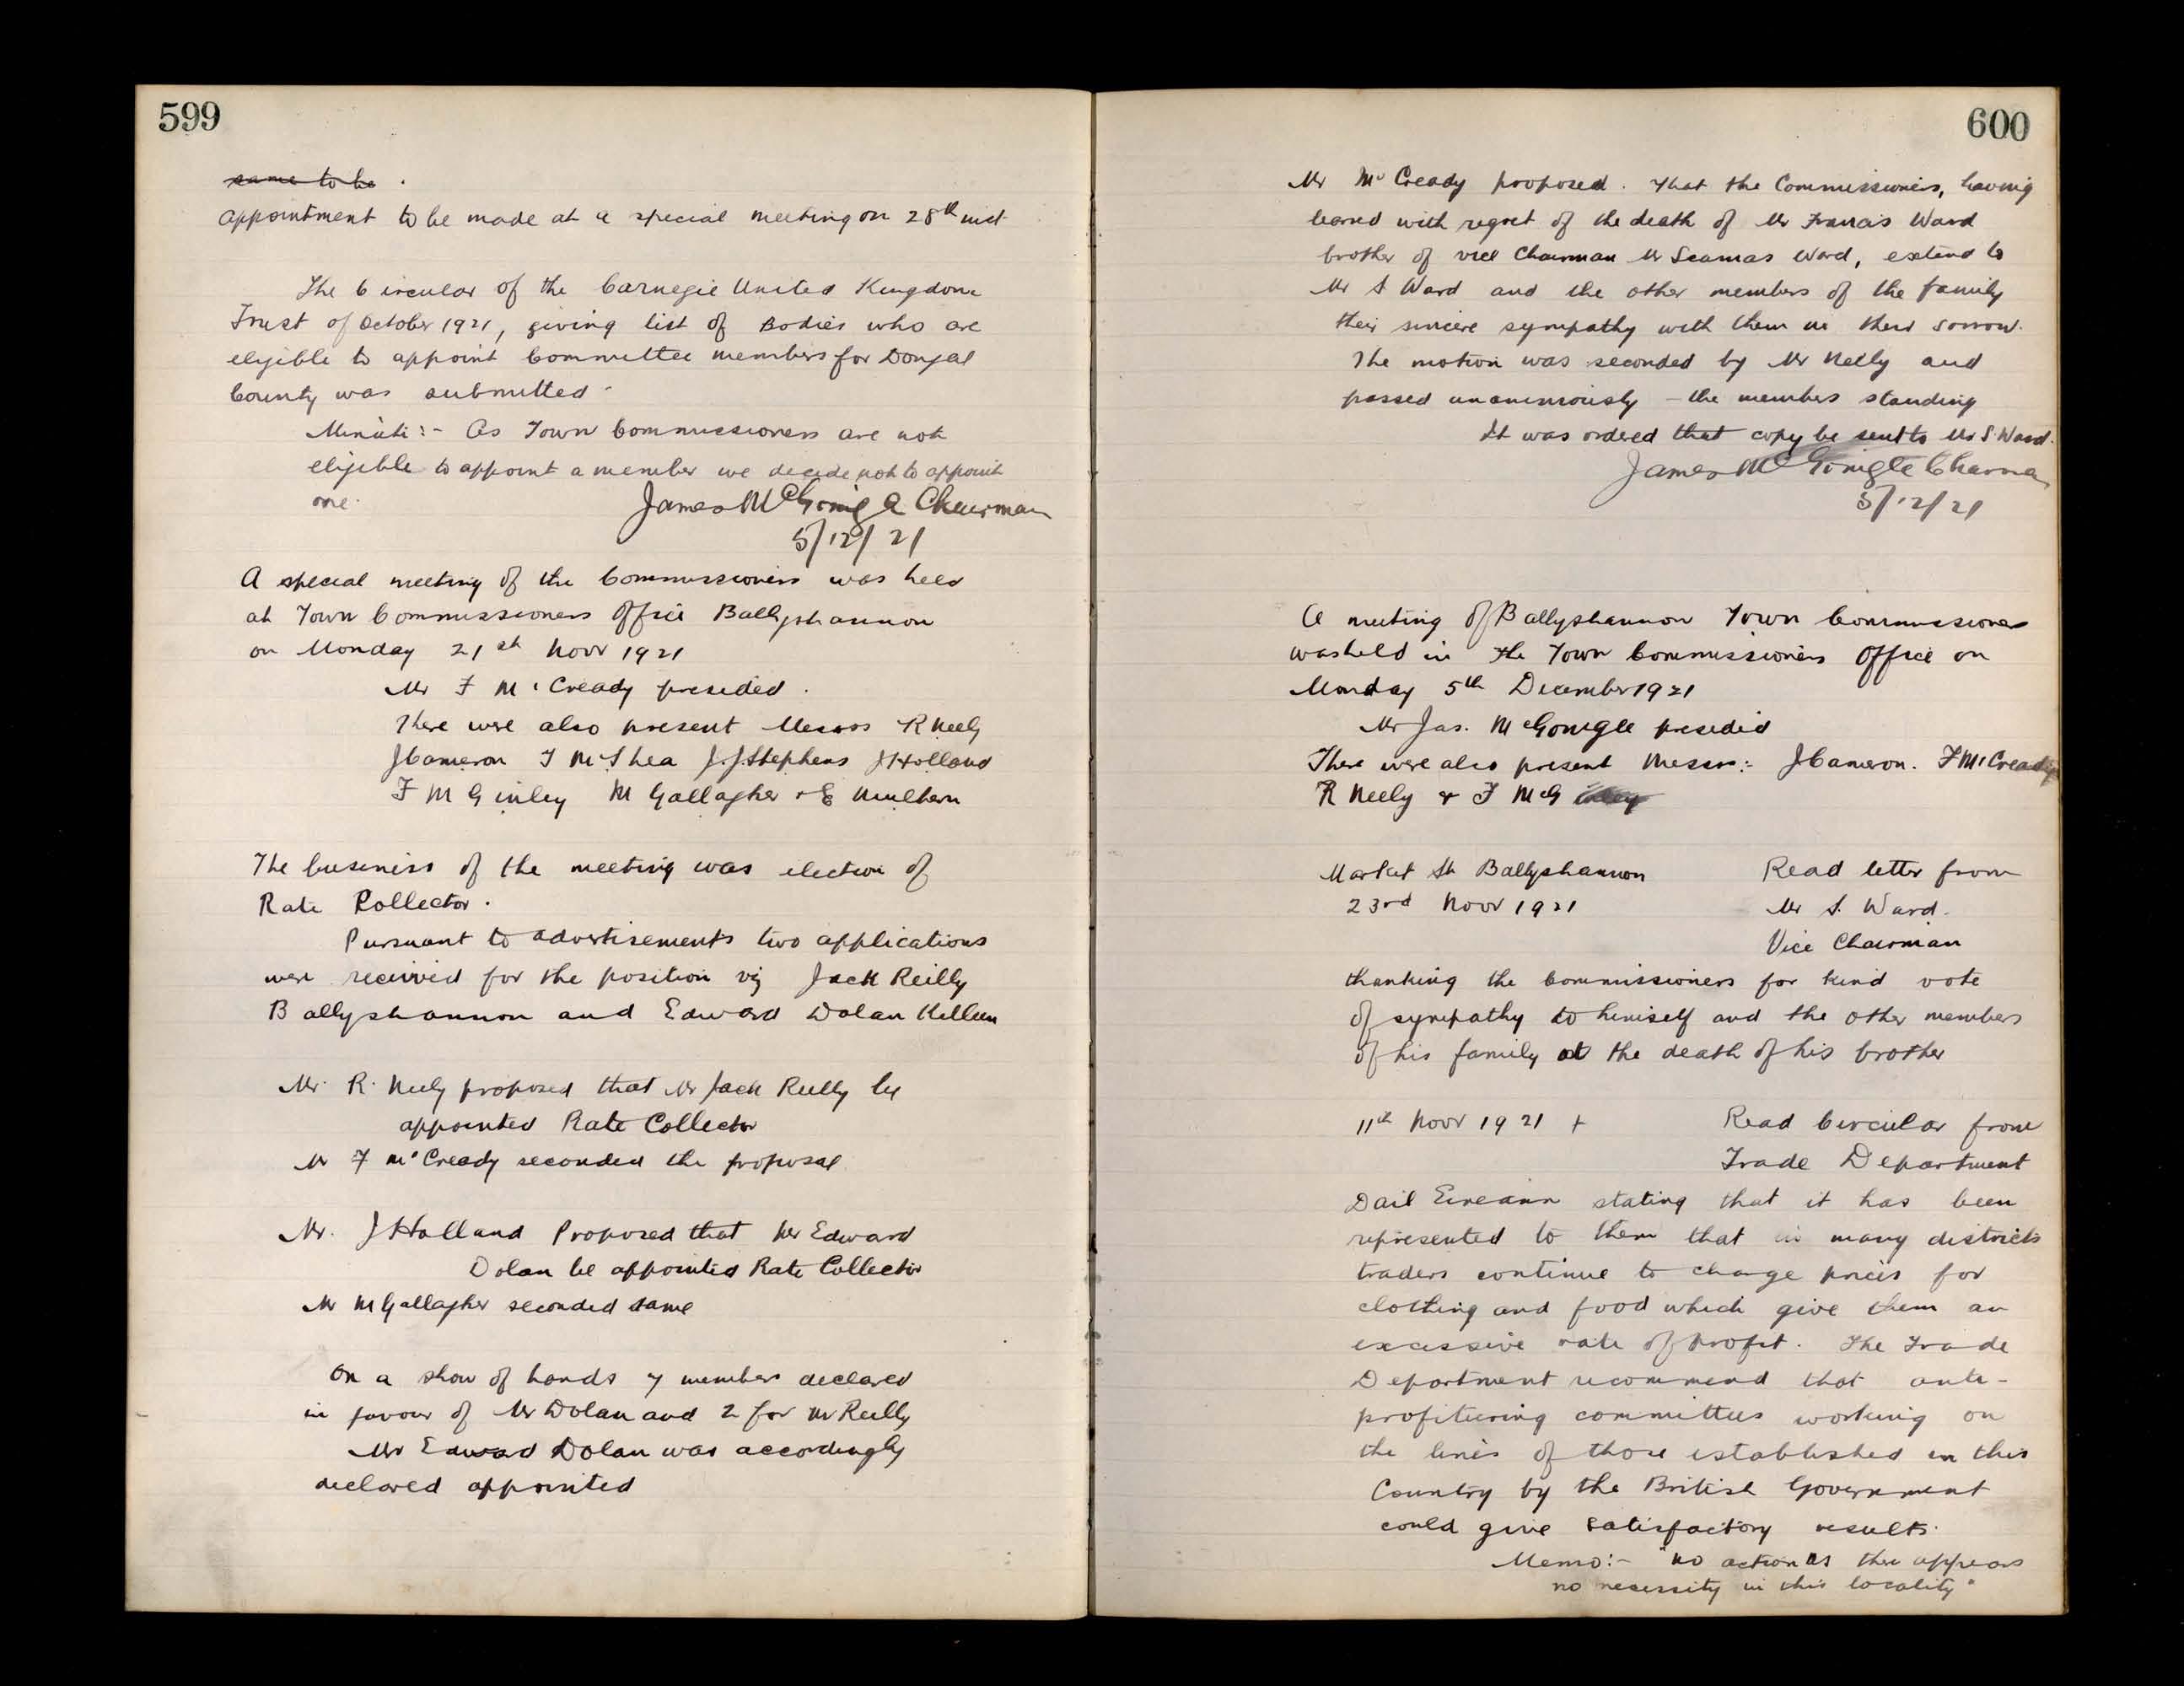 599
same to be .
appointment to be made at a special meeting on 28th inst
The Circular of the Carnegie United Kingdom
Trust of October 1921, giving list of Bodies who are
eligible to appoint Committee members for Donegal
County was submitted -
Minute:- As Town Commissioners are not
eligible to appoint a member we decide not to appoint
one.
James McGonigle Chairman
5/12/21
A special meeting of the Commissioners was held
at Town Commissioners Office Ballyshannon
on Monday 21st Novr 1921
Mr F McCready presided.
There were also present Messrs R Neely
J Cameron T McShea J.J. Stephens J Holland
F McGinley M Gallagher & E Mulhern
The business of the meeting was election of
Rate Collector.
Pursuant to advertisements two applications
were received for the position viz Jack Reilly
Ballyshannon and Edward Dolan Killeen
Mr. R. Neely proposed that Mr Jack Reilly be
appointed Rate Collector
Mr F McCready seconded the proposal
Mr. J Holland Proposed that Mr Edward
Dolan be appointed Rate Collector
Mr M Gallagher seconded same
On a show of hands 7 members declared
in favour of Mr Dolan and 2 for Mr Reilly
Mr Edward Dolan was accordingly
declared appointed
600
Mr McCready proposed. That the Commissioners, having
learned with regret of the death of Mr Francis Ward
brother of vice Chairman Mr Seamas Ward, extend to
Mr S Ward and the other members of the family
their sincere sympathy with them in their sorrow.
The motion was seconded by Mr Neely and
passed unanimously - the members standing
It was ordered that copy be sent to Mr S. Ward.
James McGonigle Chairman
5/12/21
A meeting of Ballyshannon Town Commissioners
was held in the Town Commissioners Office on
Monday 5th December 1921
Mr Jas. McGonigle presided
There were also present Messrs:- J Cameron. F McCready
R Neely & F McGinley
Market St Ballyshannon
23rd Novr 1921
Read letter from
Mr S. Ward.
Vice Chairman
thanking the Commissioners for kind vote
of sympathy to himself and the other members
of his family at the death of his brother
11th Novr 1921 +
Read Circular from
Trade Department
Dail Eireann stating that it has been
represented to them that in many districts
traders continue to charge prices for
clothing and food which give them an
excessive rate of profit. The Trade
Department recommend that anti-
profiteering committees working on
the lines of those established in this
Country by the British Government
could give satisfactory results.
Memo:- "No action as there appears
no necessity in this locality"